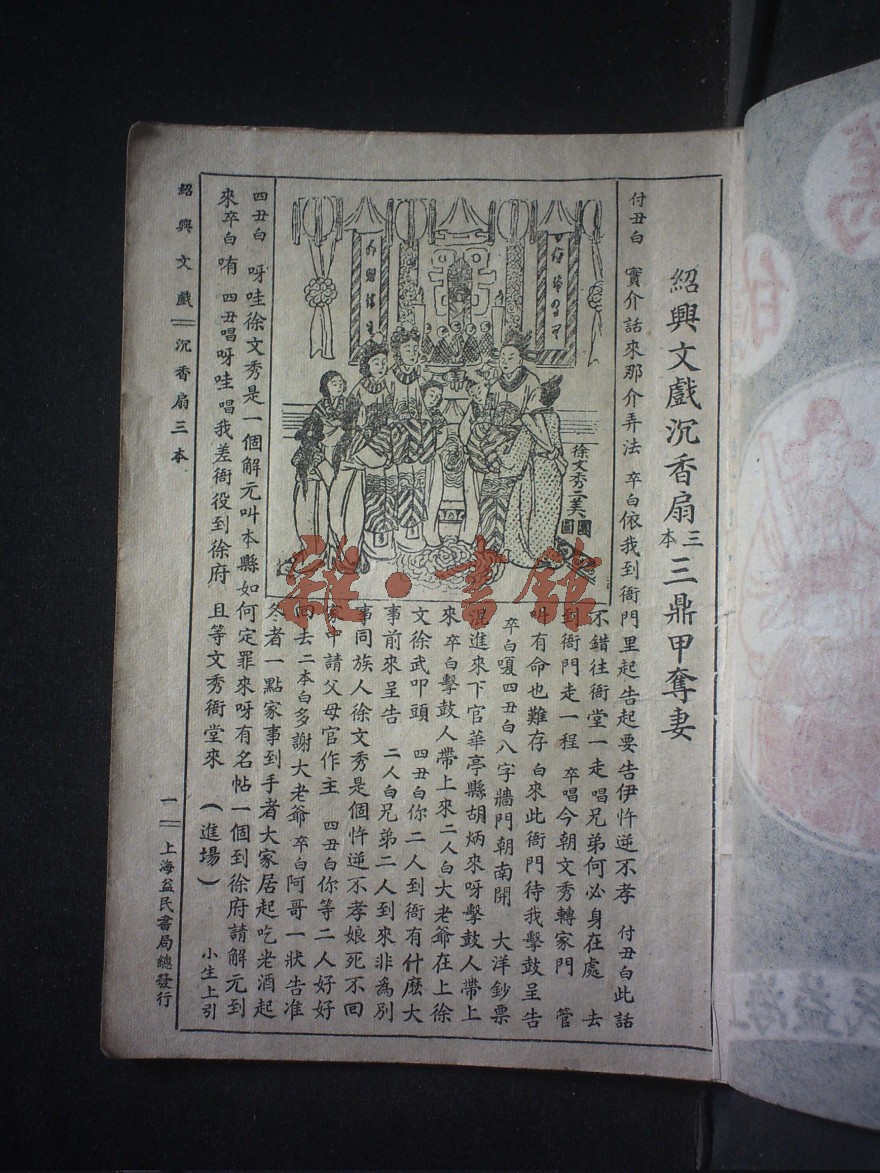 紹興文戲沉香扇三本 三鼎甲奪妻
付丑白 實介話來那介弄法 卒白依我到衙門里起告起要告伊忤逆不孝 付丑白此話
不錯往衙堂一走唱兄弟何必身在處 去
到衙門走一程 卒唱今朝文秀轉家門 管
叫有命也難存 白來此衙門待我擊鼓呈告
卒白嗄四丑白八字牆門朝南開 大洋鈔票
混進來下官華亭縣胡炳來呀擊鼓人帶上
來卒白擊鼓人帶上來二人白大老爺在上徐
文徐武叩頭 四丑白你二人到衙有什麽大
事前來呈告 二人白兄弟二人到來非為別
事同族人徐文秀是個忤逆不孝娘死不回
家中請父母官作主 四丑白你等二人好好
回去二本白多謝大老爺 卒白阿哥一狀告准
冬者一點家事到手者大家居起吃老酒起
四丑白 呀哇徐文秀是一個解元叫本縣如何定罪來呀有名帖一個到徐府請解元到
來卒白 哊 四丑唱呀哇 唱我差衙役到徐府 且等文秀衙堂來 (進場) 小生上引
徐文秀三美
團圓
紹興文戲 沉香扇三本
一
上海益民書局總發行
雜·書館